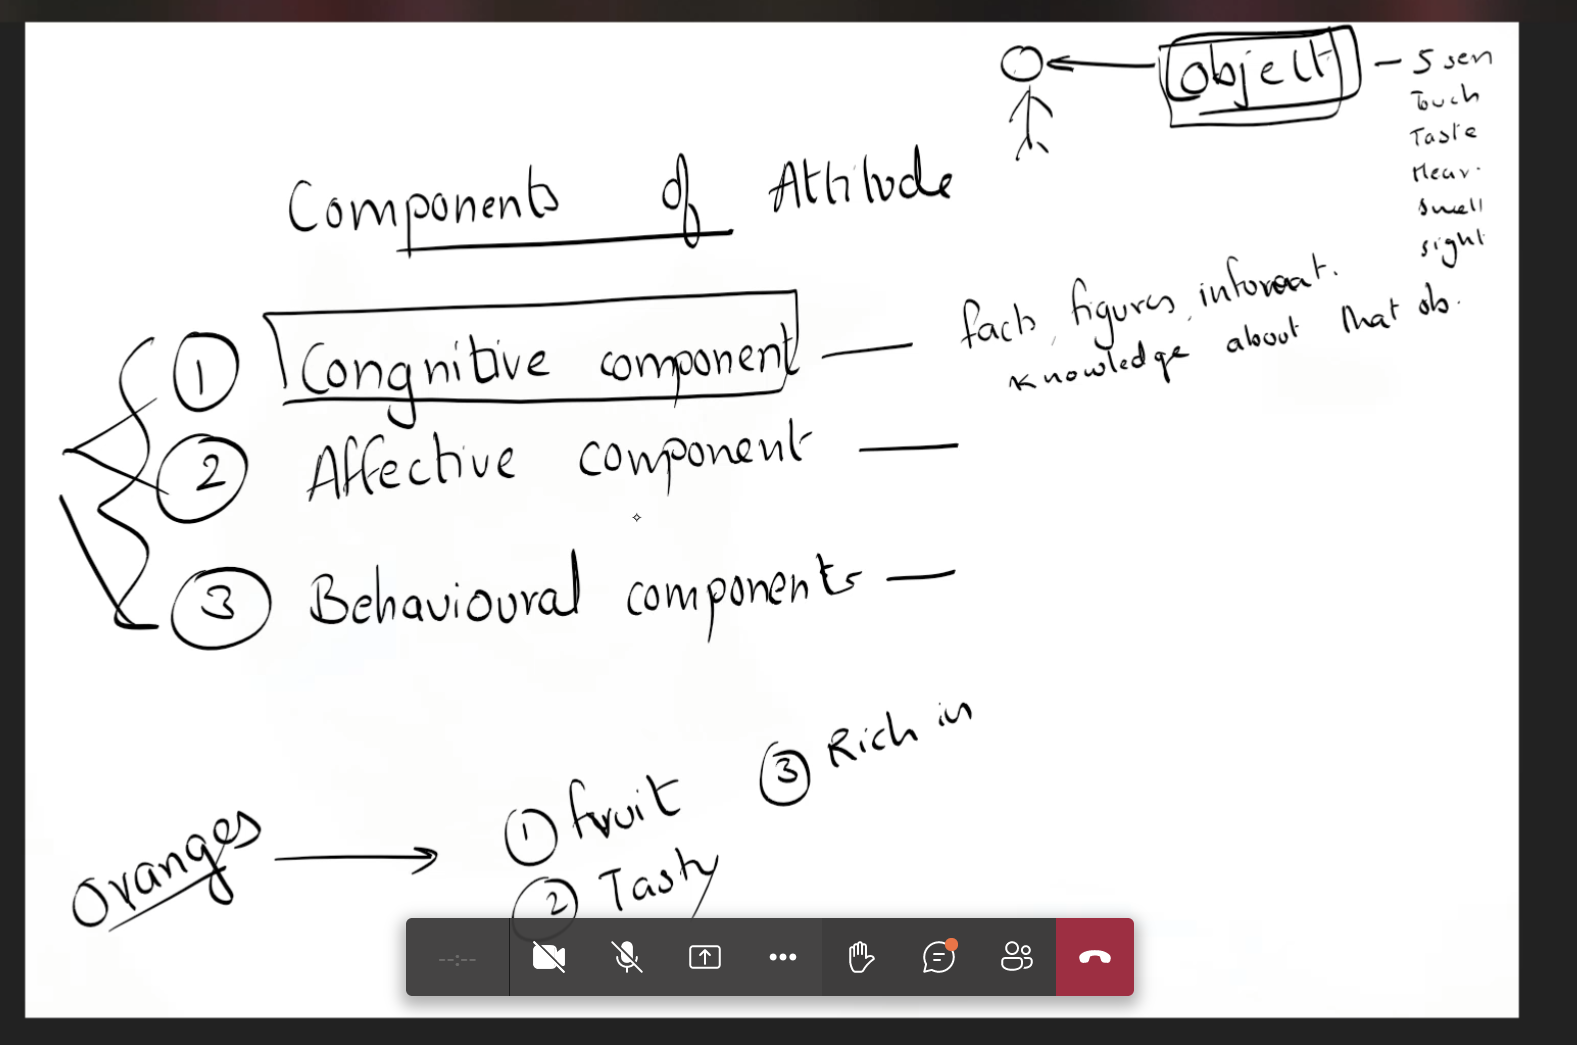 object - 5 sen
Touch
Taste
Hear.
Smell
sight
Components of Attitude
1 Congnitive component — facts, figures, informat.
knowledge about that ob.
2 Affective component —
3 Behavioural components —
Oranges → 1 fruit
2 Tasty
3 Rich in
--:--